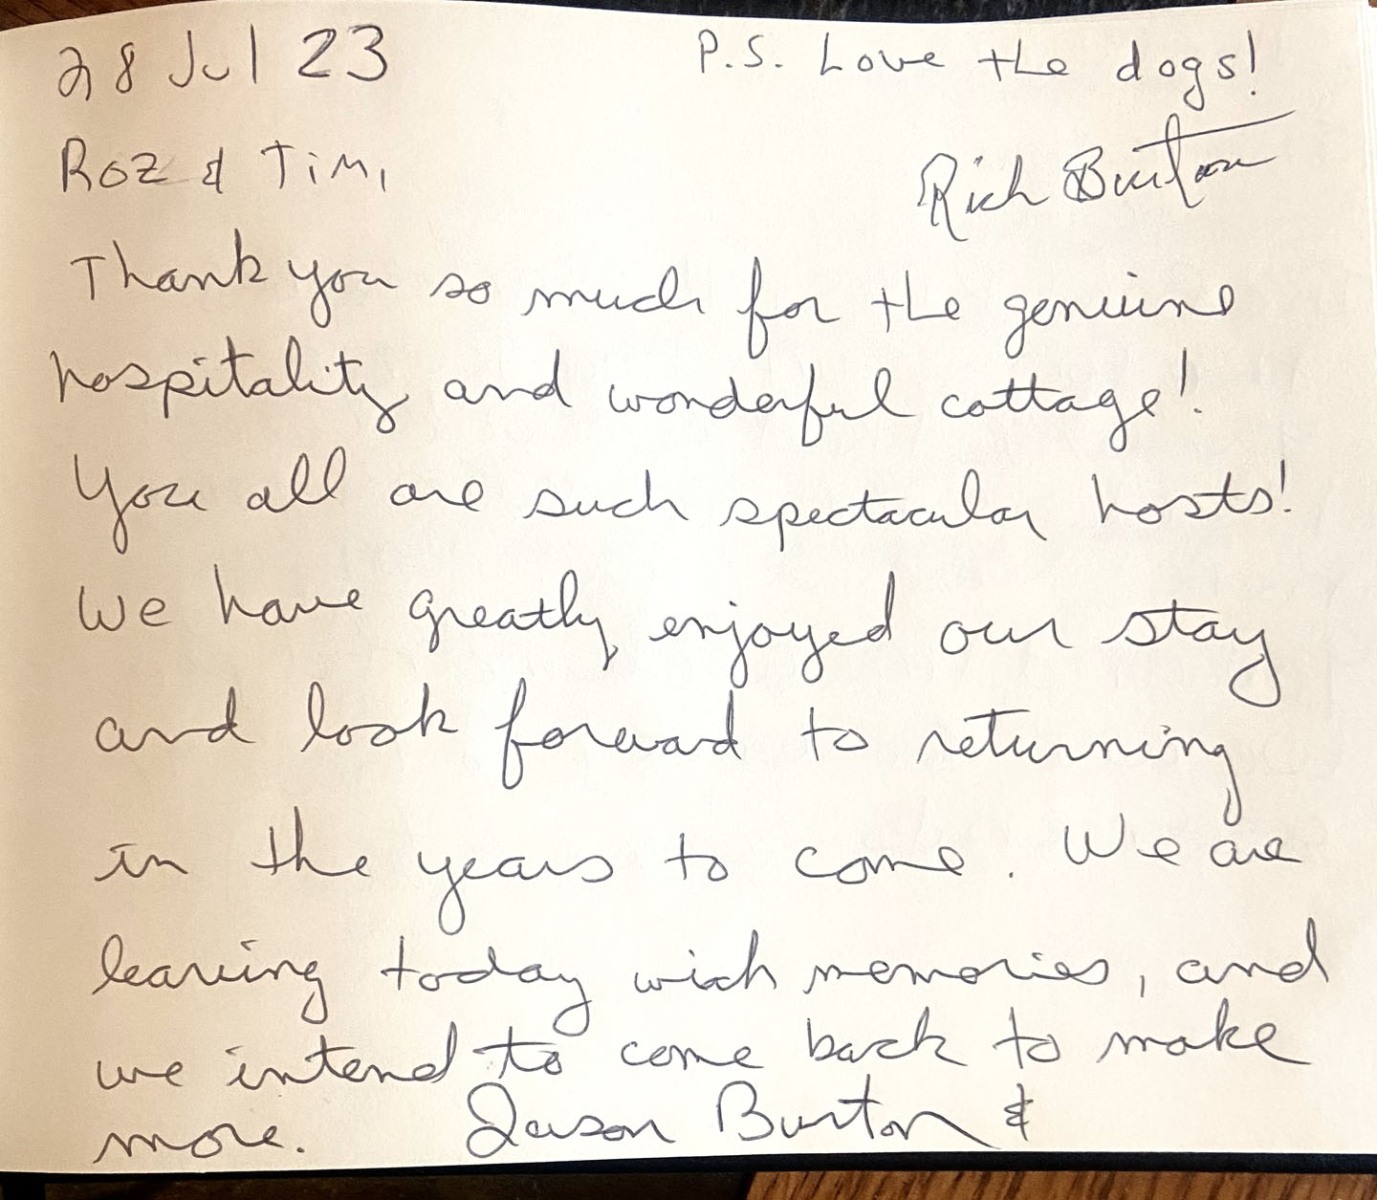 28 Jul 23
P.S. Love the dogs!
Roz & Tim,
Rich Burton
Thank you so much for the genuine
hospitality and wonderful cottage!
You all are such spectacular hosts!
We have greatly enjoyed our stay
and look forward to returning
in the years to come. We are
leaving today with memories, and
we intend to come back to make
more. Jason Burton &